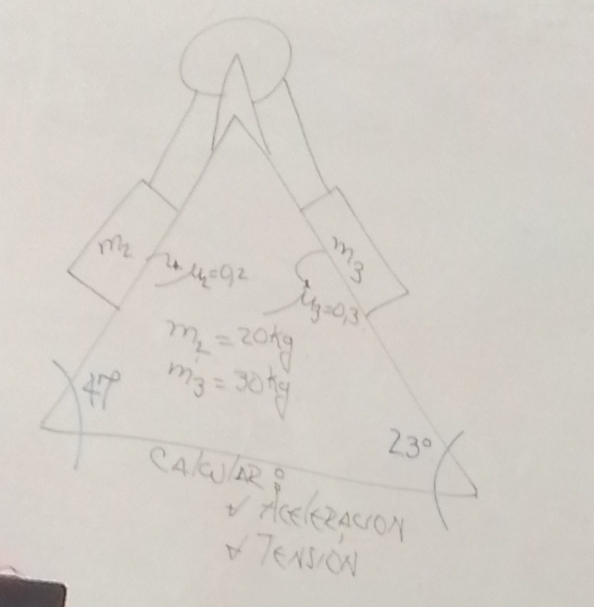 m2
m3
μ2=0,2
μ3=0,3
m2 = 20kg
m3 = 30kg
47°
23°
CALCULAR:
✓ ACELERACION
✓ TENSION